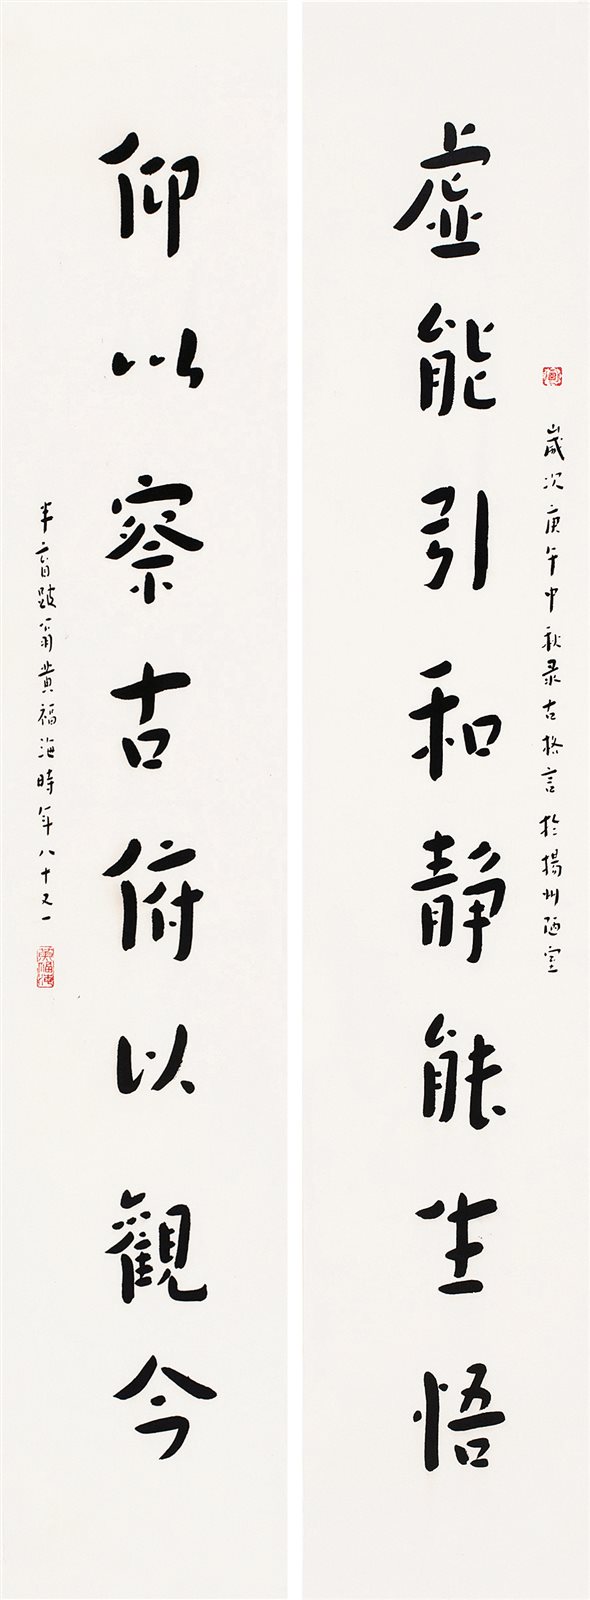 歲次庚午中秋录古格言於揚州陋室
虚能引和静能生悟
仰以察古俯以觀今
半盲跛翁黄福海時年八十又一
黄福海